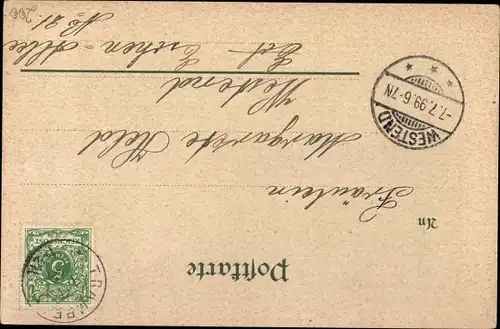 Postkarte
An
Fräulein
Margarete Held
Westend
Eschen-Allee
No 21.
WESTEND
-7.7.99.6-7N
5
200